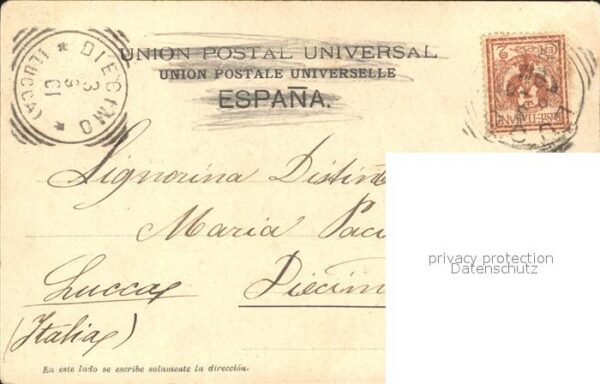 DIECIMO
(LUCCA)
3
9
01
UNION POSTAL UNIVERSAL
UNION POSTALE UNIVERSELLE
ESPAÑA.
CEN. 2
POSTE ITALIANE
Signorina Distin
Maria Paci
Lucca
Diecim
(Italia)
En este lado se escribe solamente la dirección.
privacy protection
Datenschutz